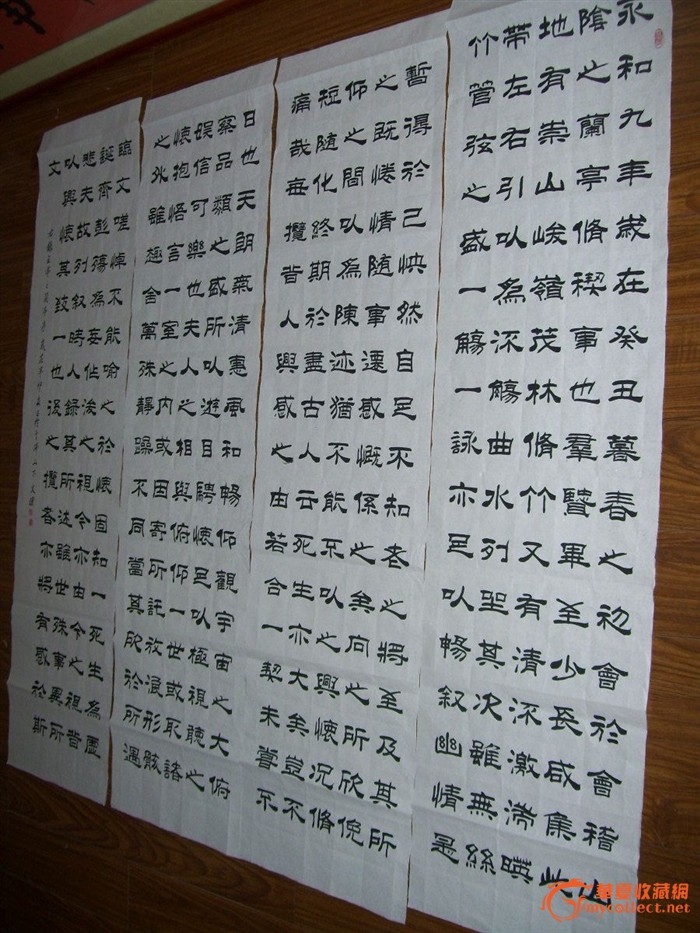 永和九年歲在癸丑暮春之初會於會稽山
陰之蘭亭脩禊事也羣賢畢至少長咸集此
地有崇山峻嶺茂林脩竹又有清流激湍暎
帶左右引以為流觴曲水列坐其次雖無絲
竹管弦之盛一觴一詠亦足以暢叙幽情是
暫得於己怏然自足不知老之將至及其所
之既惓情随事遷感慨係之矣向之所欣俛
仰之間以為陳迹猶不能不以之興懷況脩
短随化終期於盡古人云死生亦大矣豈不
痛哉每攬昔人興感之由若合一契未嘗不
日也天朗氣清惠風和暢仰觀宇宙之大俯
察品類之盛所以遊目騁懷足以極視聽之
娛信可樂也夫人之相與俯仰一世或取諸
懷抱悟言一室之內或因寄所託放浪形骸
之外雖趣舍萬殊靜躁不同當其欣於所遇
臨文嗟悼不能喻之於懷固知一死生為虛
誕齊彭殤為妄作後之視今亦由今之視昔
悲夫故列叙時人録其所述雖世殊事異所
以興懷其致一也後之攬者亦將有感於斯
文
華夏收藏網
mycollect.net